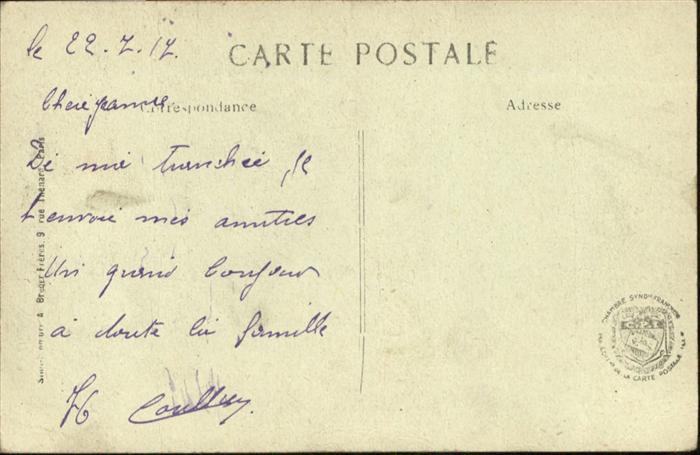 le 22.7.17.
CARTE POSTALE
Correspondance
Adresse
De ma tranchée, je
t'envoie mes amitiés
Un grand bonjour
à toute la famille
A. Breger Frères, 9 rue Thénard, Paris
CHAMBRE SYNDle FRANÇAISE
DE LA CARTE POSTALE